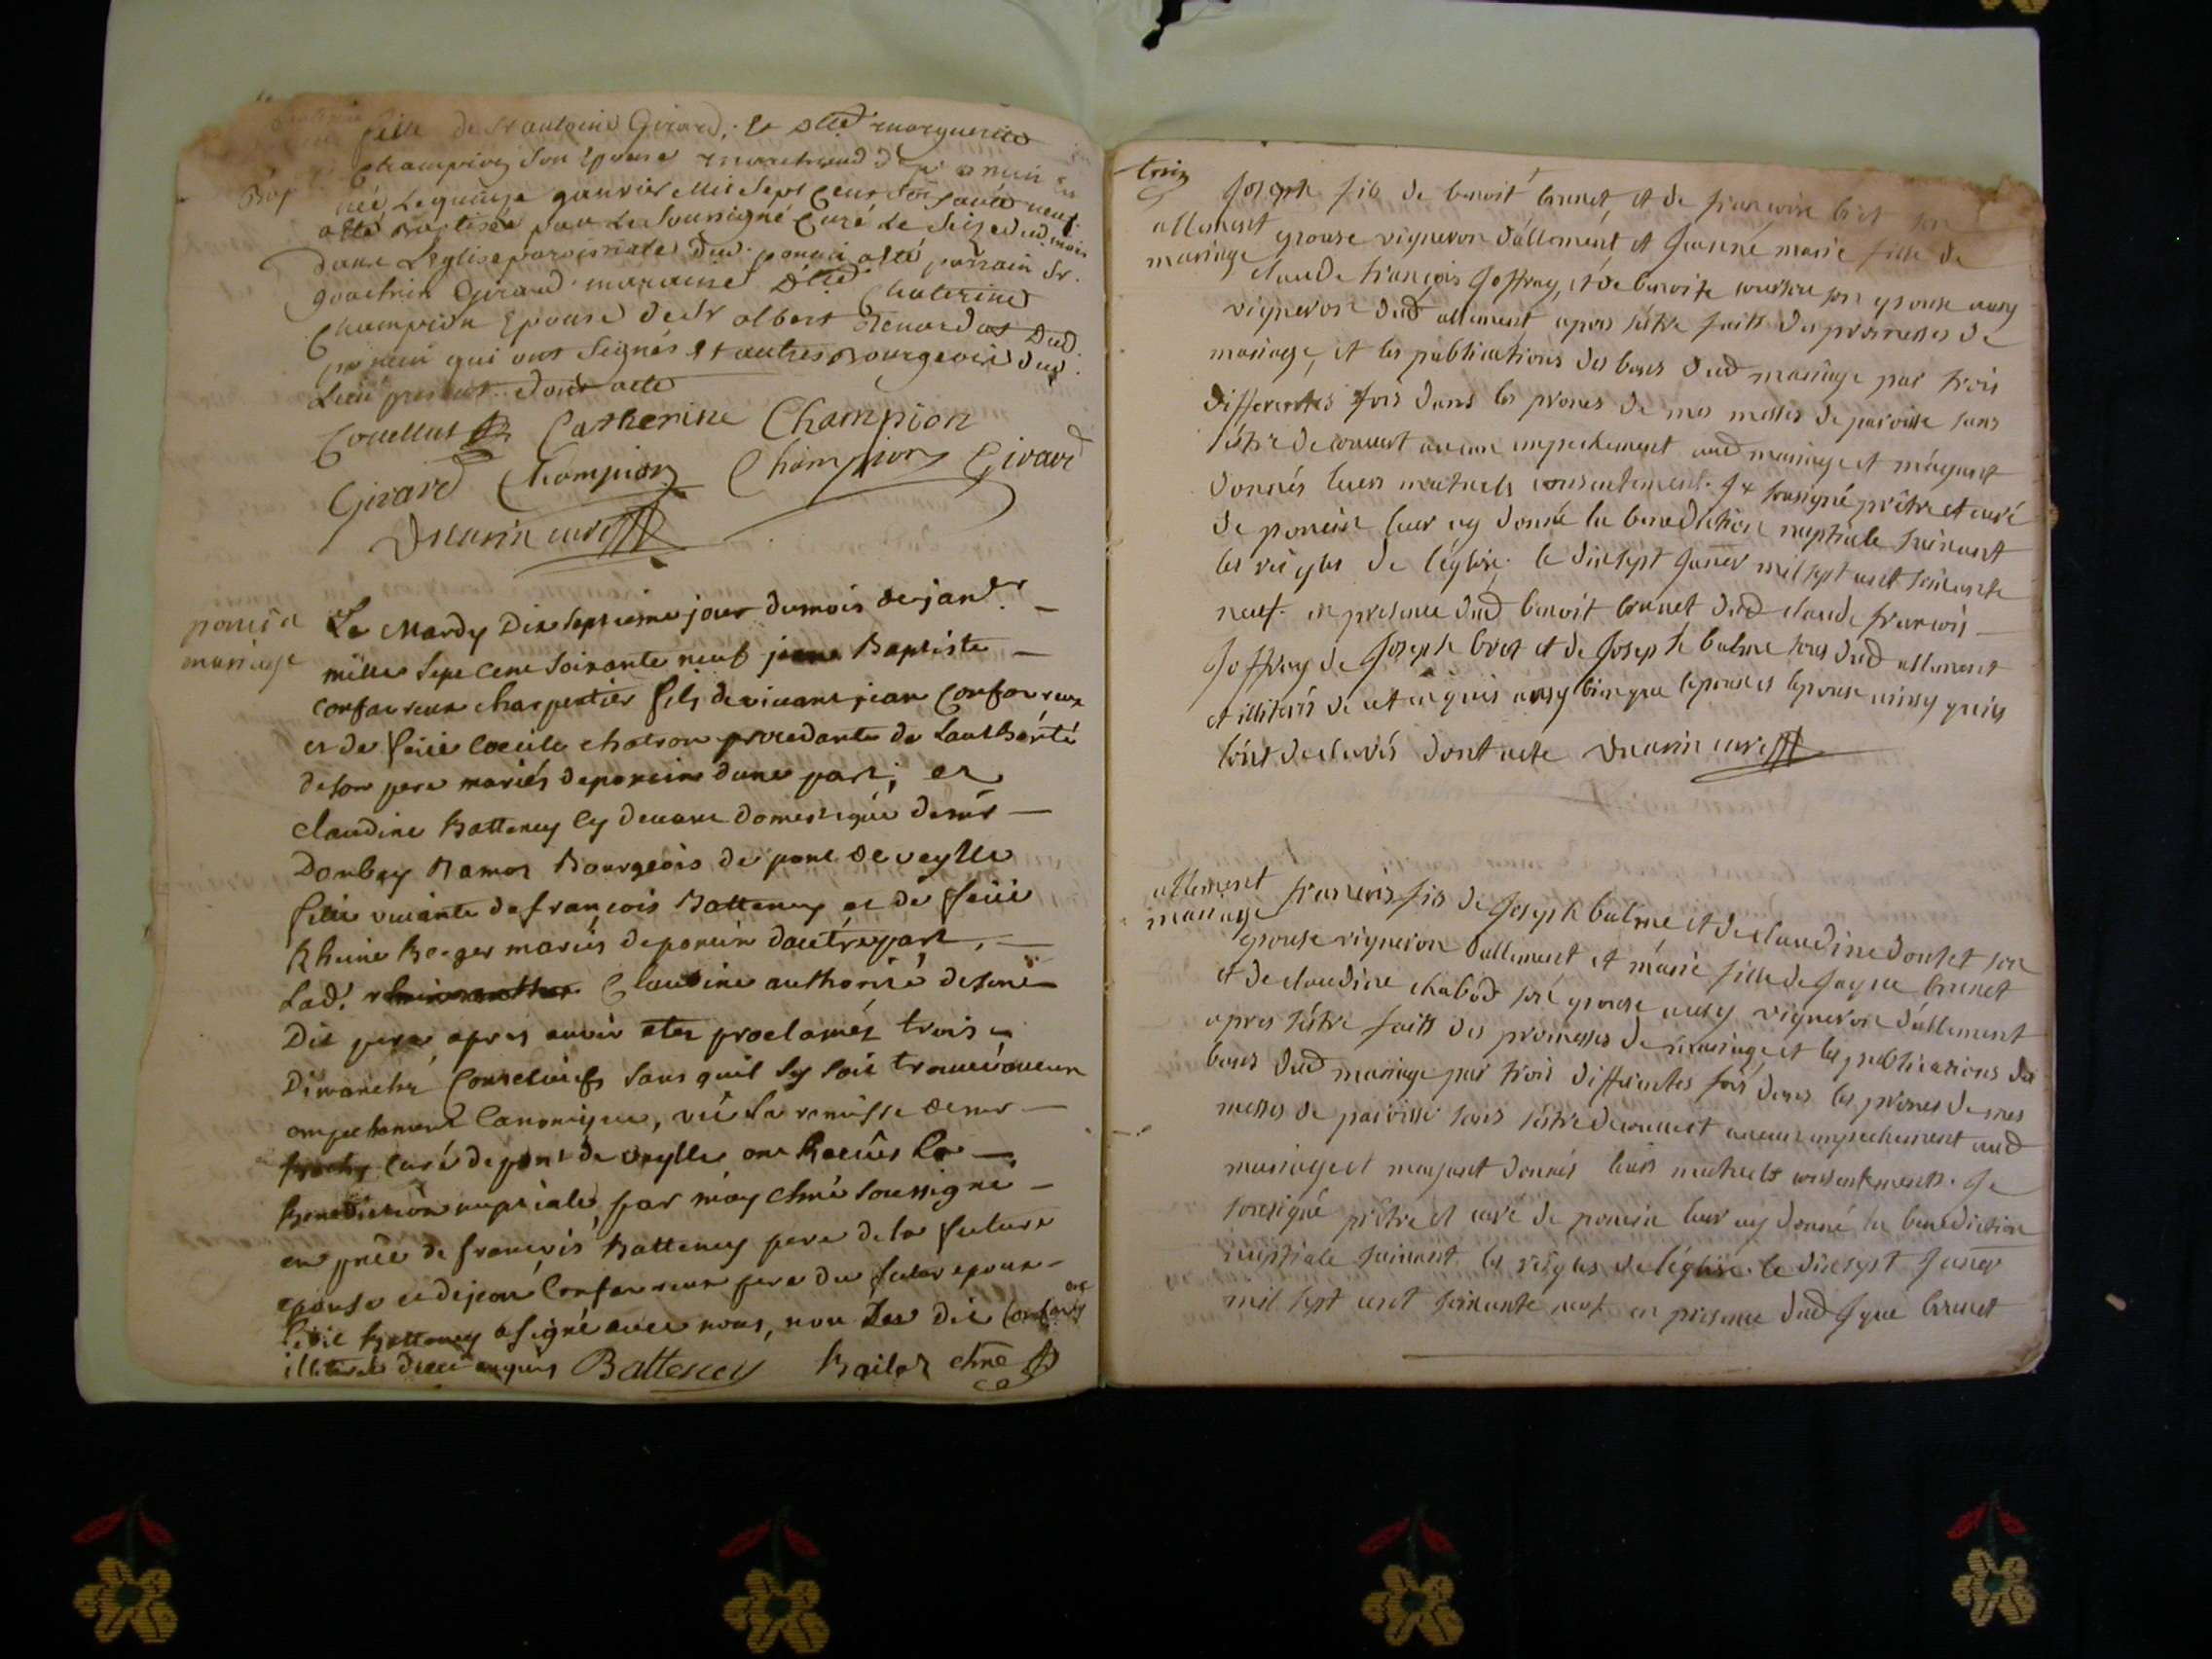 fille de Sr antoine Girard, et Dlle marguerite
Champion son Epouse marchand
Bap
née le quinze janvier Mil Sept Cent Soixante neuf
a été Baptisée par Le Soussigné Curé le Seize dud. mois
dans L'Eglise paroissiale dud. poncin a été parrain Sr.
Girard maraine Dlle Chaterine
Champion Epouse de Sr albert Renard dud.
poncin qui ont Signés et autres Bourgeois dud.
Lieu present dont acte
Catherine Champion
Girard Champion Champion Girard
Duarin curé
poncin
mariage
Le Mardy Dix Septieme jour du mois de janv.r
mille Sept Cent Soixante neuf jean Baptiste
Confavreux charpentier fils de vivant jean Confavreux
et de feüe Cecile chatron procedante de Lauthorité
de son pere mariés de poncin dune part; et
claudine Batteney Cy devant domestique de mr
Bourgeois de pont de veylle
fille vivante de françois Batteney et de feüe
Rheine Berger mariés de poncin dautre part,
Lad.t Claudine authorisé de son
Dit pere, apres avoir etes proclamés trois
Dimanche Consecutifs sans quil sy soit trouvé aucun
empechement Canonique, vü La remisse de mr
curé de pont de veylle ont Recûes la
Benediction nuptiale, par moy chne soussigné
en pnce de françois Batteney pere de la future
epouse et de jean Confavreux pere du futur epoux
Ledit Batteney a signé avec nous, non Les dit Confavreux
illiterés de ce enquis Batteney Bailet chne
allement
mariage
Joseph fils de benoit brunet, et de françoise bret son
epouse vigneron d'allement, et Jeanne marie fille de
claude françois Joffray, et de benoite son epouse aussy
vigneron dud allement apres s'être faits des promesses de
mariage, et les publications des bans dud mariage par trois
differentes fois dans les prones de mes messes de paroisse sans
s'être decouvert aucun empechement aud mariage et m'ayant
donnés leurs mutuels consentement. Je sousigné prêtre et curé
de poncin leur ay donné la benediction nuptiale suivant
les règles de l'église. le dixsept Janer mil sept cent soixante
neuf. en presence dud benoit brunet dud claude françois
Joffray de Joseph bret et de Joseph balme tous dud allement
et illiterés de ce enquis aussy bien que lepoux et lepouse ainsy quils
l'ont declarés dont acte Duarin curé
allement
mariage
françois fils de Joseph balme et de claudine donzet son
epouse vigneron d'allement et marie fille de Jaque brunet
et de claudine chabod son epouse aussy vigneron d'allement
apres s'être faits des promesses de mariage et les publications des
bans dud mariage par trois differentes fois dans les prones de mes
messes de paroisse sans s'être decouvert aucun empechement aud
mariage et m'ayant donnés leurs mutuels consentements. Je
sousigné prêtre et curé de poncin leur ay donné la benediction
nuptiale suivant les règles de l'église. le dixsept Janer
mil sept cent soixante neuf en presence dud Jaque brunet